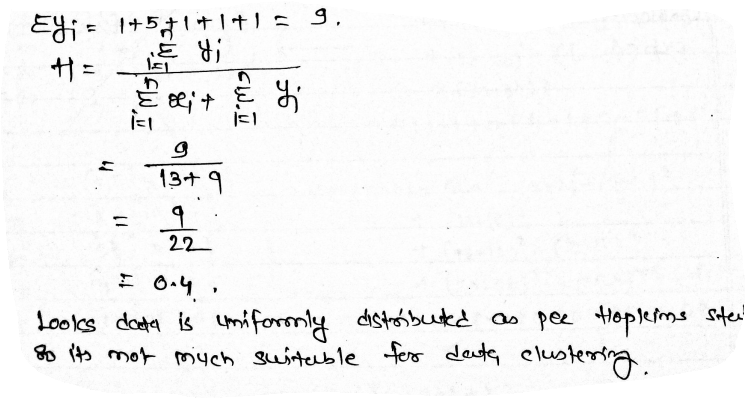 Σyi = 1+5+1+1+1 = 9.
H = Σ(i=1 to n) yi / (Σ(i=1 to n) xi + Σ(i=1 to n) yi)
= 9 / (13+9)
= 9 / 22
= 0.4.
Looks data is uniformly distributed as per Hopkins
so its not much suitable for data clustering.